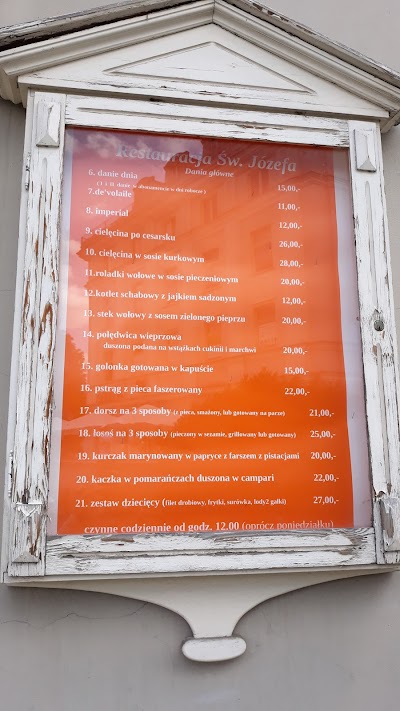 Restauracja Św. Józefa
Dania główne
6. danie dnia 15,00,-
( I i II danie w abonamencie w dni robocze )
7.de'volaile 11,00,-
8. imperial 12,00,-
9. cielęcina po cesarsku 26,00,-
10. cielęcina w sosie kurkowym 28,00,-
11.roladki wołowe w sosie pieczeniowym 20,00,-
12.kotlet schabowy z jajkiem sadzonym 12,00,-
13. stek wołowy z sosem zielonego pieprzu 20,00,-
14. polędwica wieprzowa
duszona podana na wstążkach cukinii i marchwi 20,00,-
15. golonka gotowana w kapuście 15,00,-
16. pstrąg z pieca faszerowany 22,00,-
17. dorsz na 3 sposoby (z pieca, smażony, lub gotowany na parze) 21,00,-
18. łosoś na 3 sposoby (pieczony w sezamie, grillowany lub gotowany) 25,00,-
19. kurczak marynowany w papryce z farszem z pistacjami 20,00,-
20. kaczka w pomarańczach duszona w campari 22,00,-
21. zestaw dziecięcy (filet drobiowy, frytki, surówka, lody2 gałki) 27,00,-
czynne codziennie od godz. 12.00 (oprócz poniedziałku)